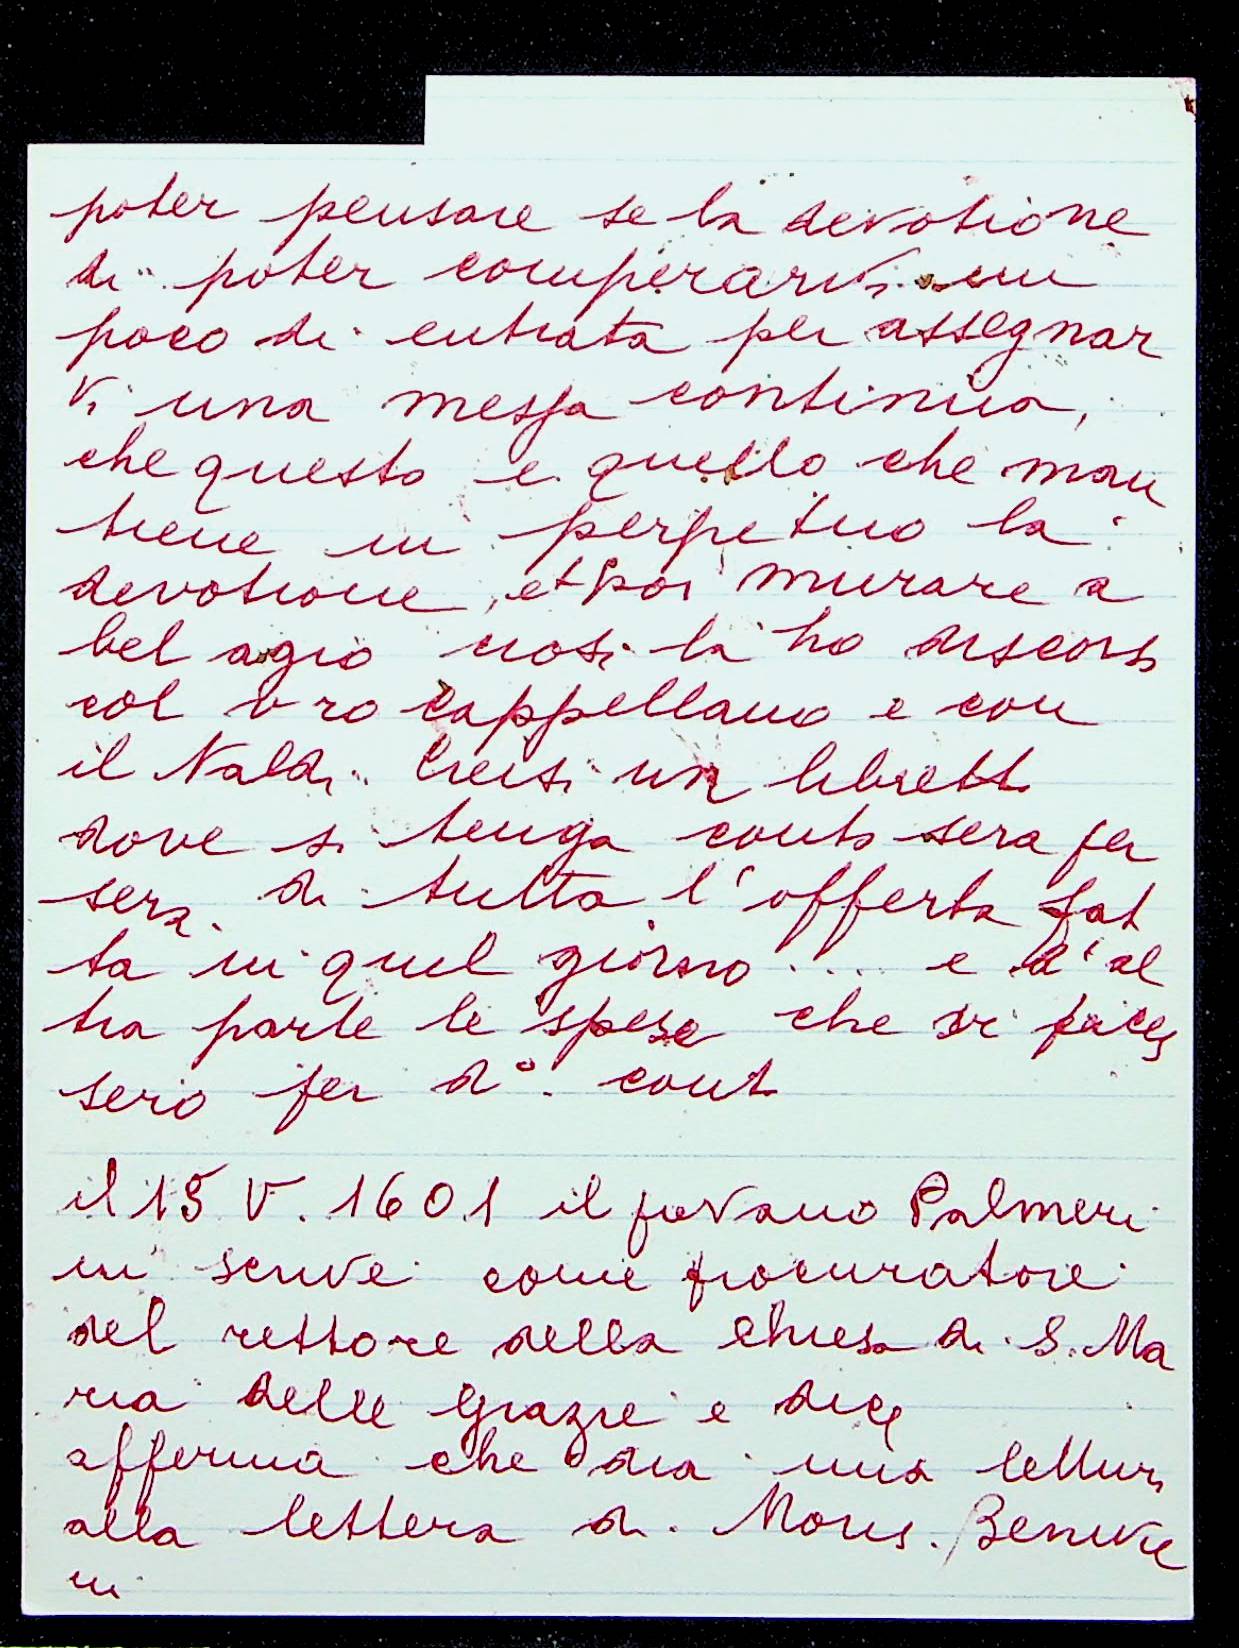 poter pensare se la devotione
di poter comperarvi un
poco di entrata per assegnar
vi una messa continua,
che questo e quello che man
tiene in perpetuo la
devotione, et poi murare a
bel agio cosi la ho discorso
col vro cappellano e con
il Naldi. un libretto
dove si tenga conto sera per
sera di tutta l'offerta fat
ta in quel giorno .... e d'al
tra parte le spese che si faces
sero per do. conto
il 15 V. 1601 il pievano Palmeri
ni scrive come procuratore
del rettore della Chiesa di S. Ma
ria delle Grazie e dice
afferma che dia una
alla lettera di Mons. Benivie
ni